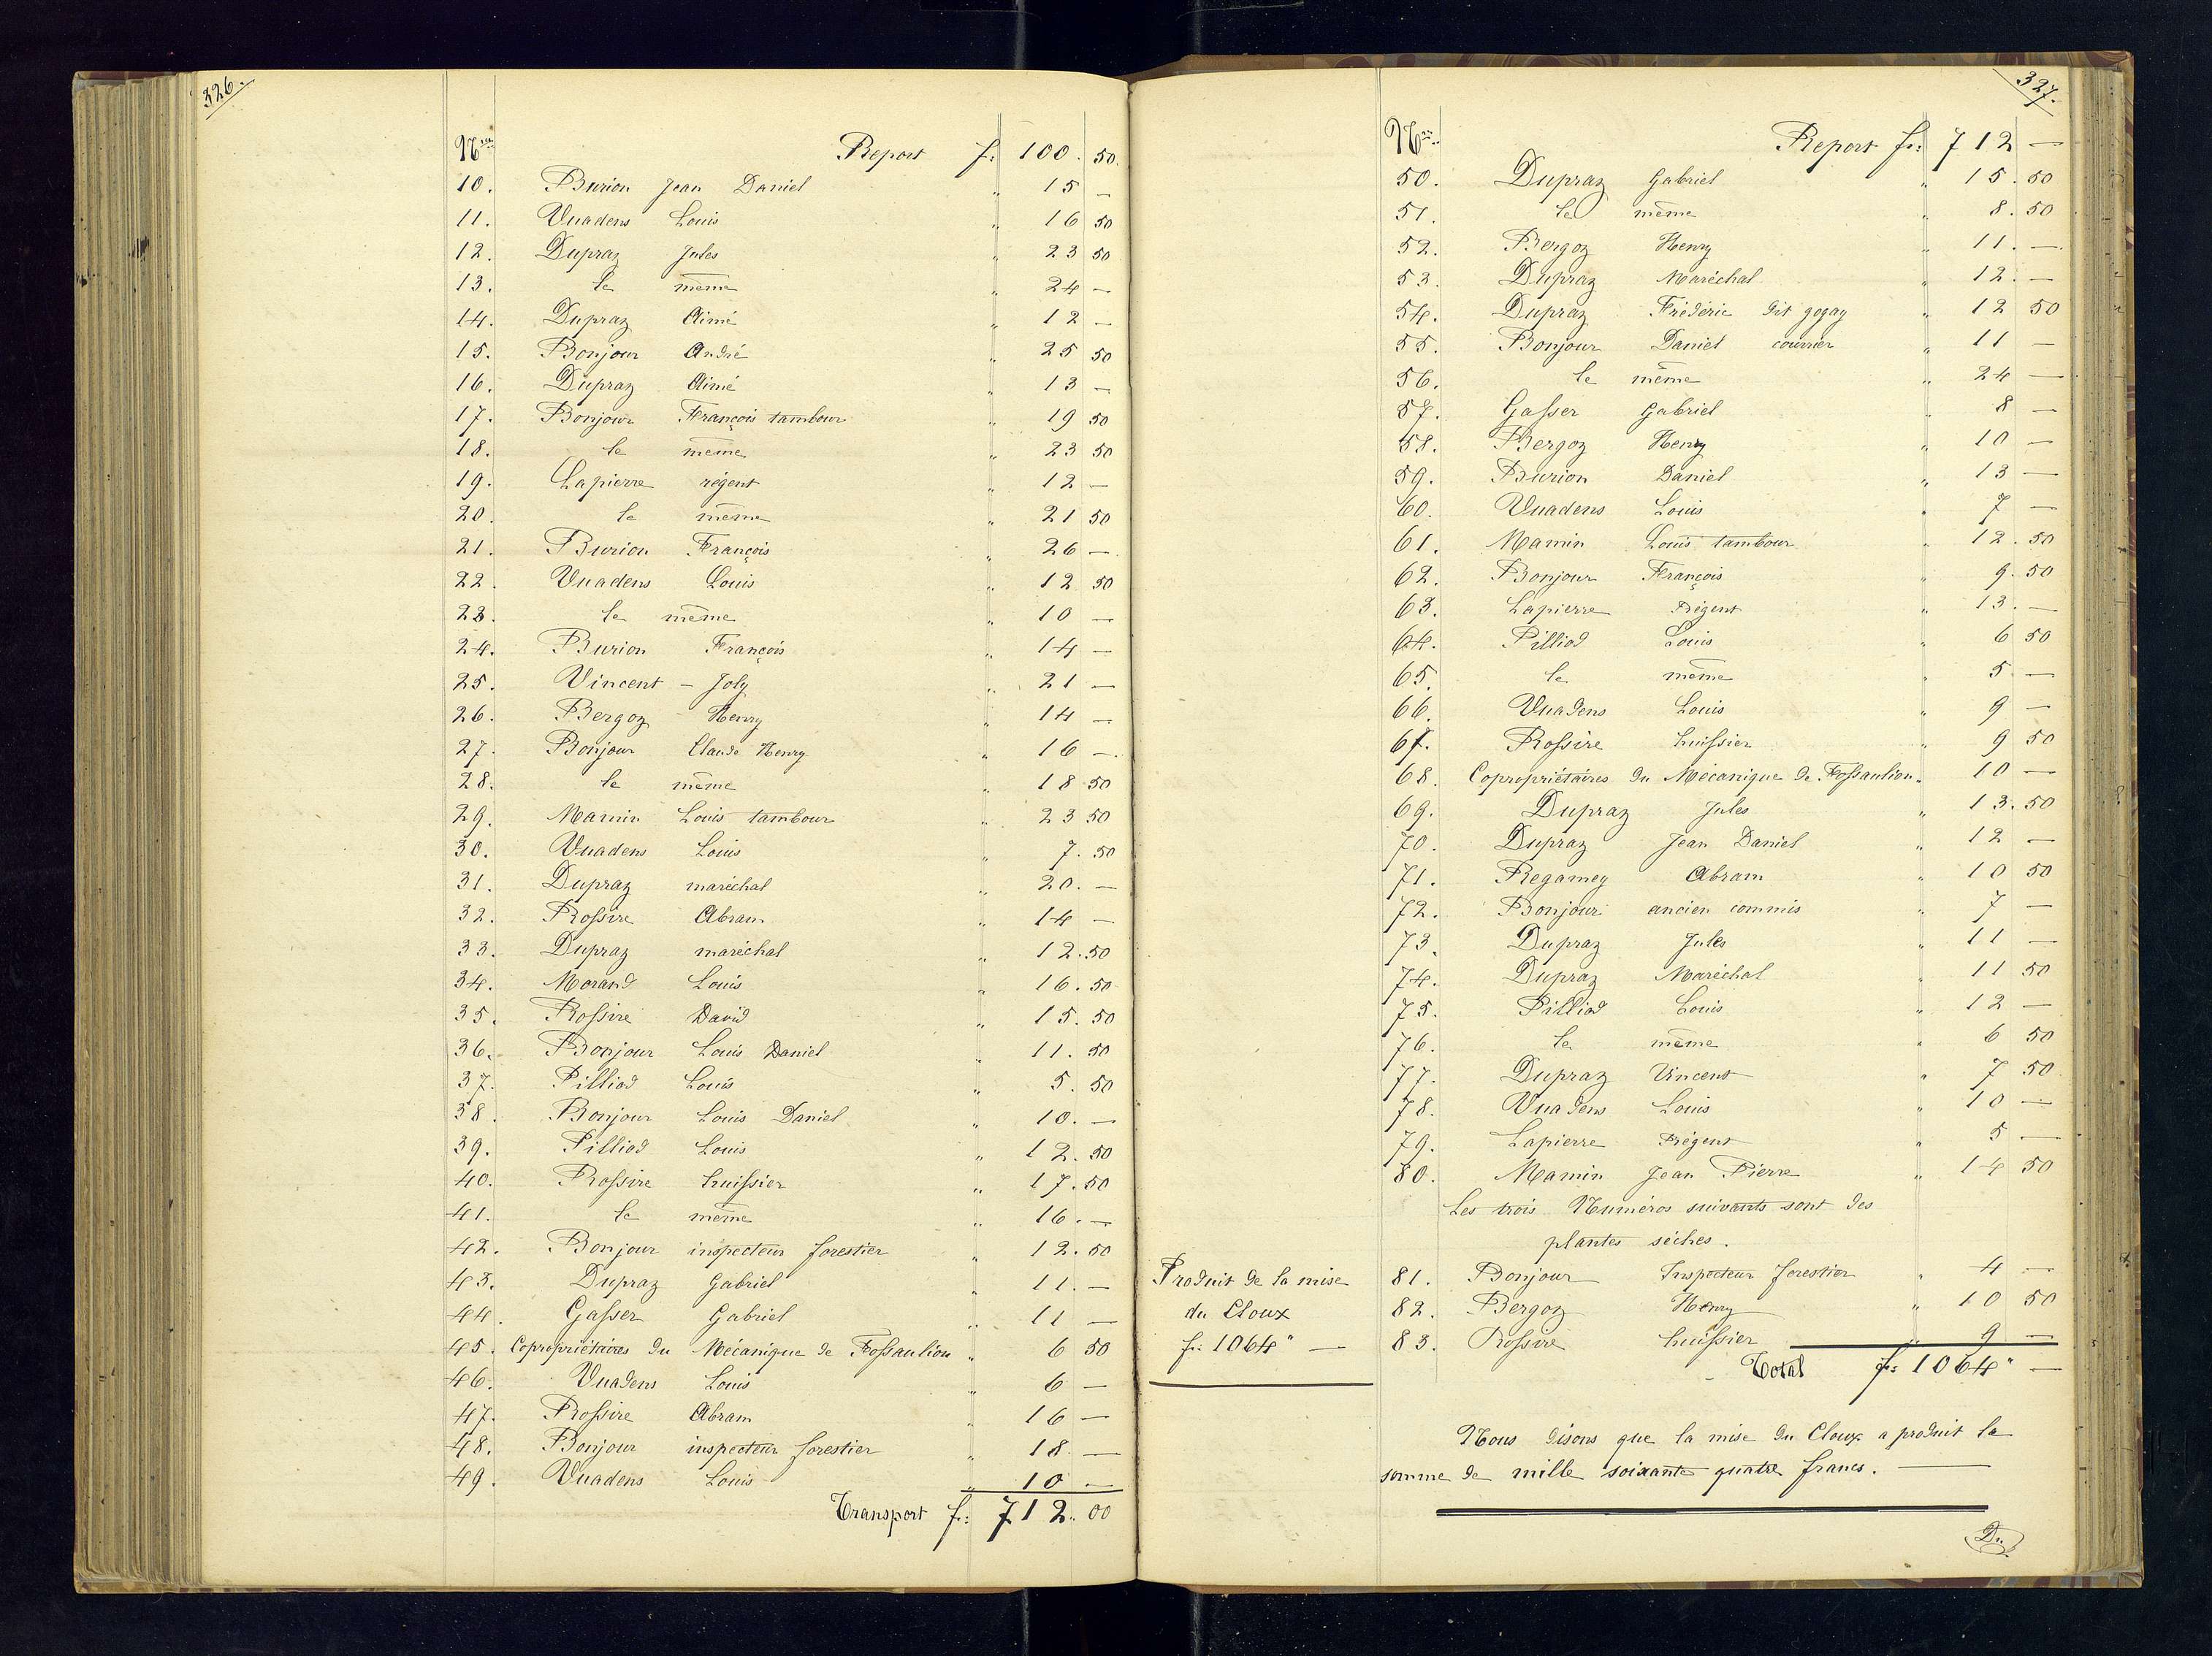 326.
Nros Report fr: 100. 50.
10. Burion Jean Daniel " 15 —
11. Vuadens Louis " 16 50
12. Dupraz Jules " 23 50
13. le même " 24 —
14. Dupraz Aimé " 12 —
15. Bonjour André " 25 50
16. Dupraz Aimé " 13 —
17. Bonjour François tambour " 19 50
18. le même " 23 50
19. Lapierre régent " 12 —
20. le même " 21 50
21. Burion François " 26 —
22. Vuadens Louis " 12 50
23. le même " 10 —
24. Burion François " 14 —
25. Vincent – Joly " 21 —
26. Bergoz Henry " 14 —
27. Bonjour Claude Henry " 16 —
28. le même " 18 50
29. Mamin Louis tambour " 23 50
30. Vuadens Louis " 7. 50
31. Dupraz maréchal " 20. —
32. Rossire Abram " 14 —
33. Dupraz maréchal " 12. 50
34. Morand Louis " 16. 50
35. Rossire David " 15. 50
36. Bonjour Louis Daniel " 11. 50
37. Pilliod Louis " 5. 50
38. Bonjour Louis Daniel " 10. —
39. Pilliod Louis " 12. 50
40. Rossire huissier " 17. 50
41. le même " 16. —
42. Bonjour inspecteur forestier " 12. 50
43. Dupraz Gabriel " 11. —
44. Gasser Gabriel " 11 —
45. Copropriétaires du Mécanique de Fossaulion " 6 50
46. Vuadens Louis " 6 —
47. Rossire Abram " 16 —
48. Bonjour inspecteur forestier " 18 —
49. Vuadens Louis " 10 —
Transport fr: 712. 00
327.
Nros Report fr: 712 —
50. Dupraz Gabriel " 15. 50
51. le même " 8. 50
52. Bergoz Henry " 11. —
53. Dupraz Maréchal " 12. —
54. Dupraz Fréderic dit gogay " 12 50
55. Bonjour Daniel courrier " 11 —
56. le même " 24 —
57. Gasser Gabriel " 8 —
58. Bergoz Henry " 10 —
59. Burion Daniel " 13 —
60. Vuadens Louis " 7 —
61. Mamin Louis tambour " 12. 50
62. Bonjour François " 9. 50
63. Lapierre Régent " 13. —
64. Pilliod Louis " 6 50
65. le même " 5 —
66. Vuadens Louis " 9 —
67. Rossire huissier " 9 50
68. Copropriétaires du Mécanique de Fossaulion " 10 —
69. Dupraz Jules " 13. 50
70. Dupraz Jean Daniel " 12 —
71. Regamey Abram " 10 50
72. Bonjour ancien commis " 7 —
73. Dupraz Jules " 11 —
74. Dupraz Maréchal " 11 50
75. Pilliod Louis " 12 —
76. le même " 6 50
77. Dupraz Vincent " 7 50
78. Vuadens Louis " 10 —
79. Lapierre Régent " 5 —
80. Mamin Jean Pierre " 14 50
Les trois Numéros suivants sont des
plantes sèches.
Produit de la mise
du Cloux
fr: 1064 " —
81. Bonjour Inspecteur forestier " 4 —
82. Bergoz Henry " 10 50
83. Rossire huissier " 9 —
Total fr: 1064 " —
Nous disons que la mise du Cloux a produit la
somme de mille soixante quatre francs. —
Du